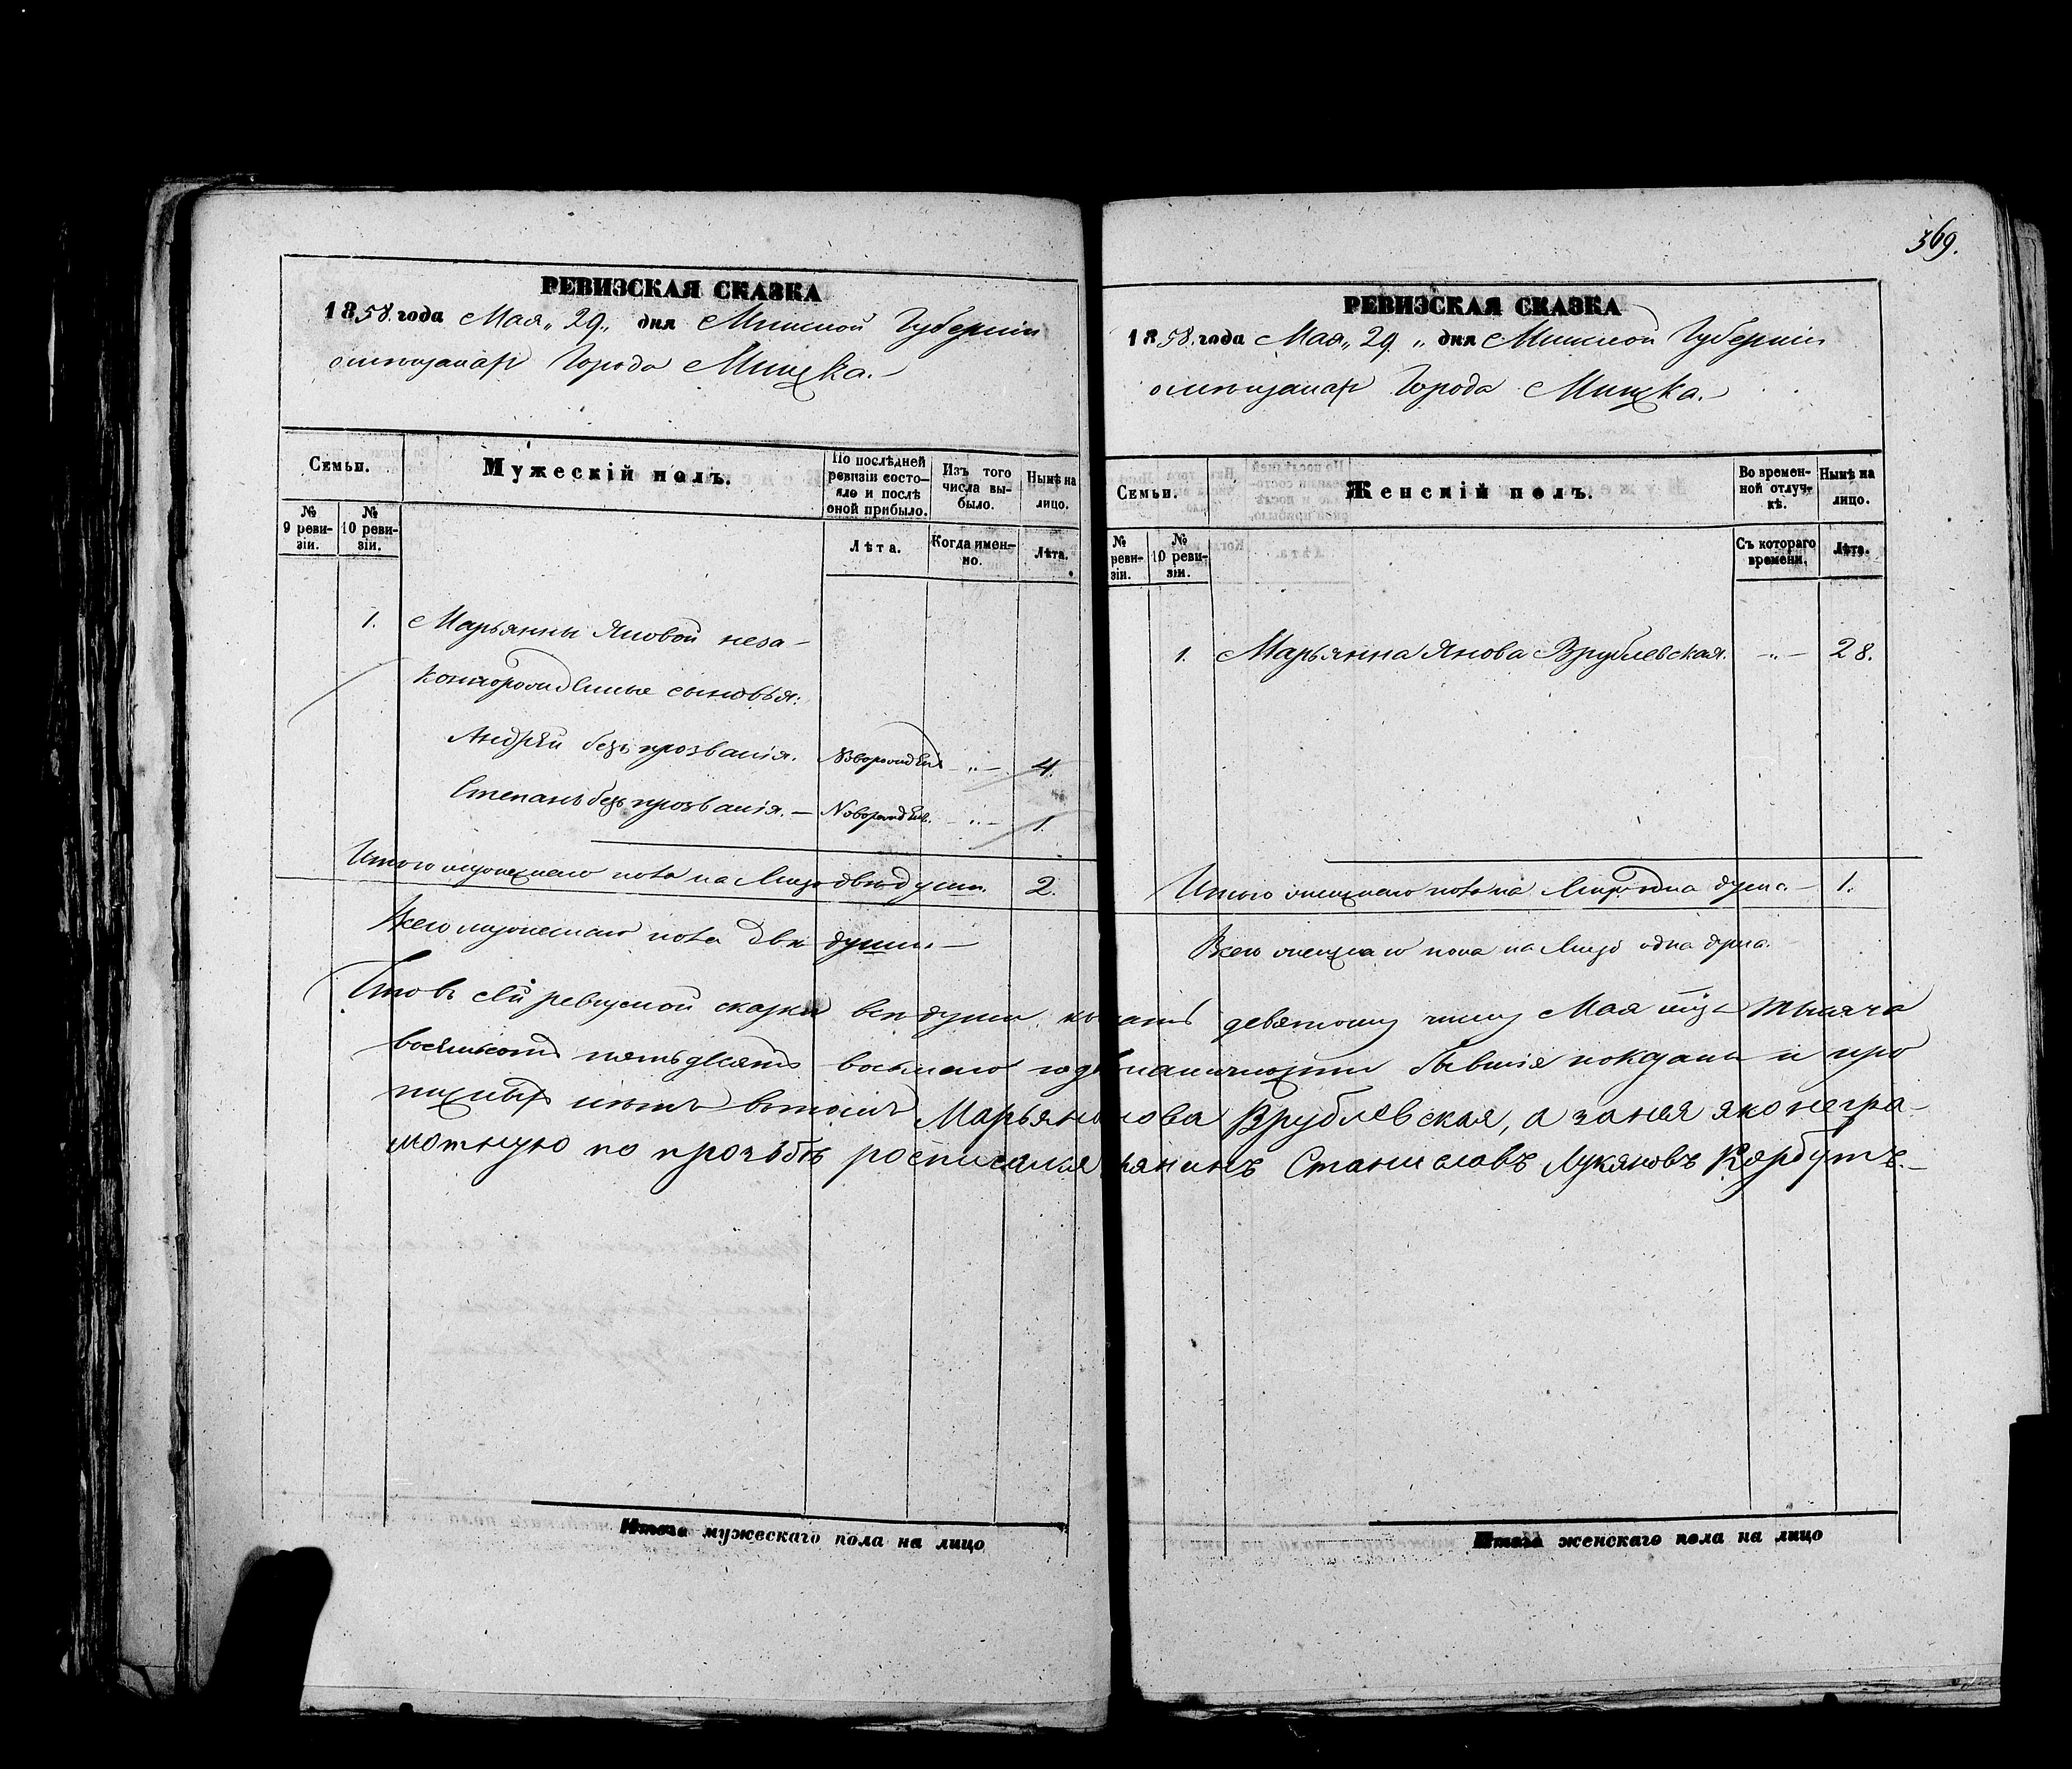 369.
РЕВИЗСКАЯ СКАЗКА
1858 года Мая „29„ дня Минской Губерніи
о мѣщанахъ Города Минска.
Семьи.
Мужескій полъ.
По послѣдней ревизіи состояло и послѣ оной прибыло.
Изъ того числа выбыло.
Нынѣ на лицо.
№ 9 ревизіи.
№ 10 ревизіи.
Лѣта.
Когда именно.
Лѣта.
1. Марьянны Яновой неза-
коннорожденные сыновья:
Андрей безъ прозванія. Новорожден. — „ — 4.
Степанъ безъ прозванія. — Новорожден. — „ — 1.
Итого мужескаго пола на лицо двѣ души. 2.
Всего мужескаго пола двѣ души. —
РЕВИЗСКАЯ СКАЗКА
1858 года Мая „29„ дня Минской Губерніи
о мѣщанахъ Города Минска. —
Семьи.
Женскій полъ.
Во временной отлучкѣ.
Нынѣ на лицо.
№ ревизіи.
№ 10 ревизіи.
Съ котораго времени.
Лѣта.
1. Марьянна Янова Врублевская. — „ — 28.
Итого женскаго пола на лицо одна душа. — 1.
Всего женскаго пола на лицо одна душа.
Что въ сей ревизской сказки всѣ души къ девятому числу Мая тысяча
восемьсотъ пятьдесятъ восьмаго года наличности бывшія показаны и про
писныхъ нѣтъ въ томъ Марьянна Янова Врублевская, а за нея яко негра-
мотную по прозьбѣ росписался Станиславъ Лукяновъ Корбутъ. —
Итого мужескаго пола на лицо
Итого женскаго пола на лицо